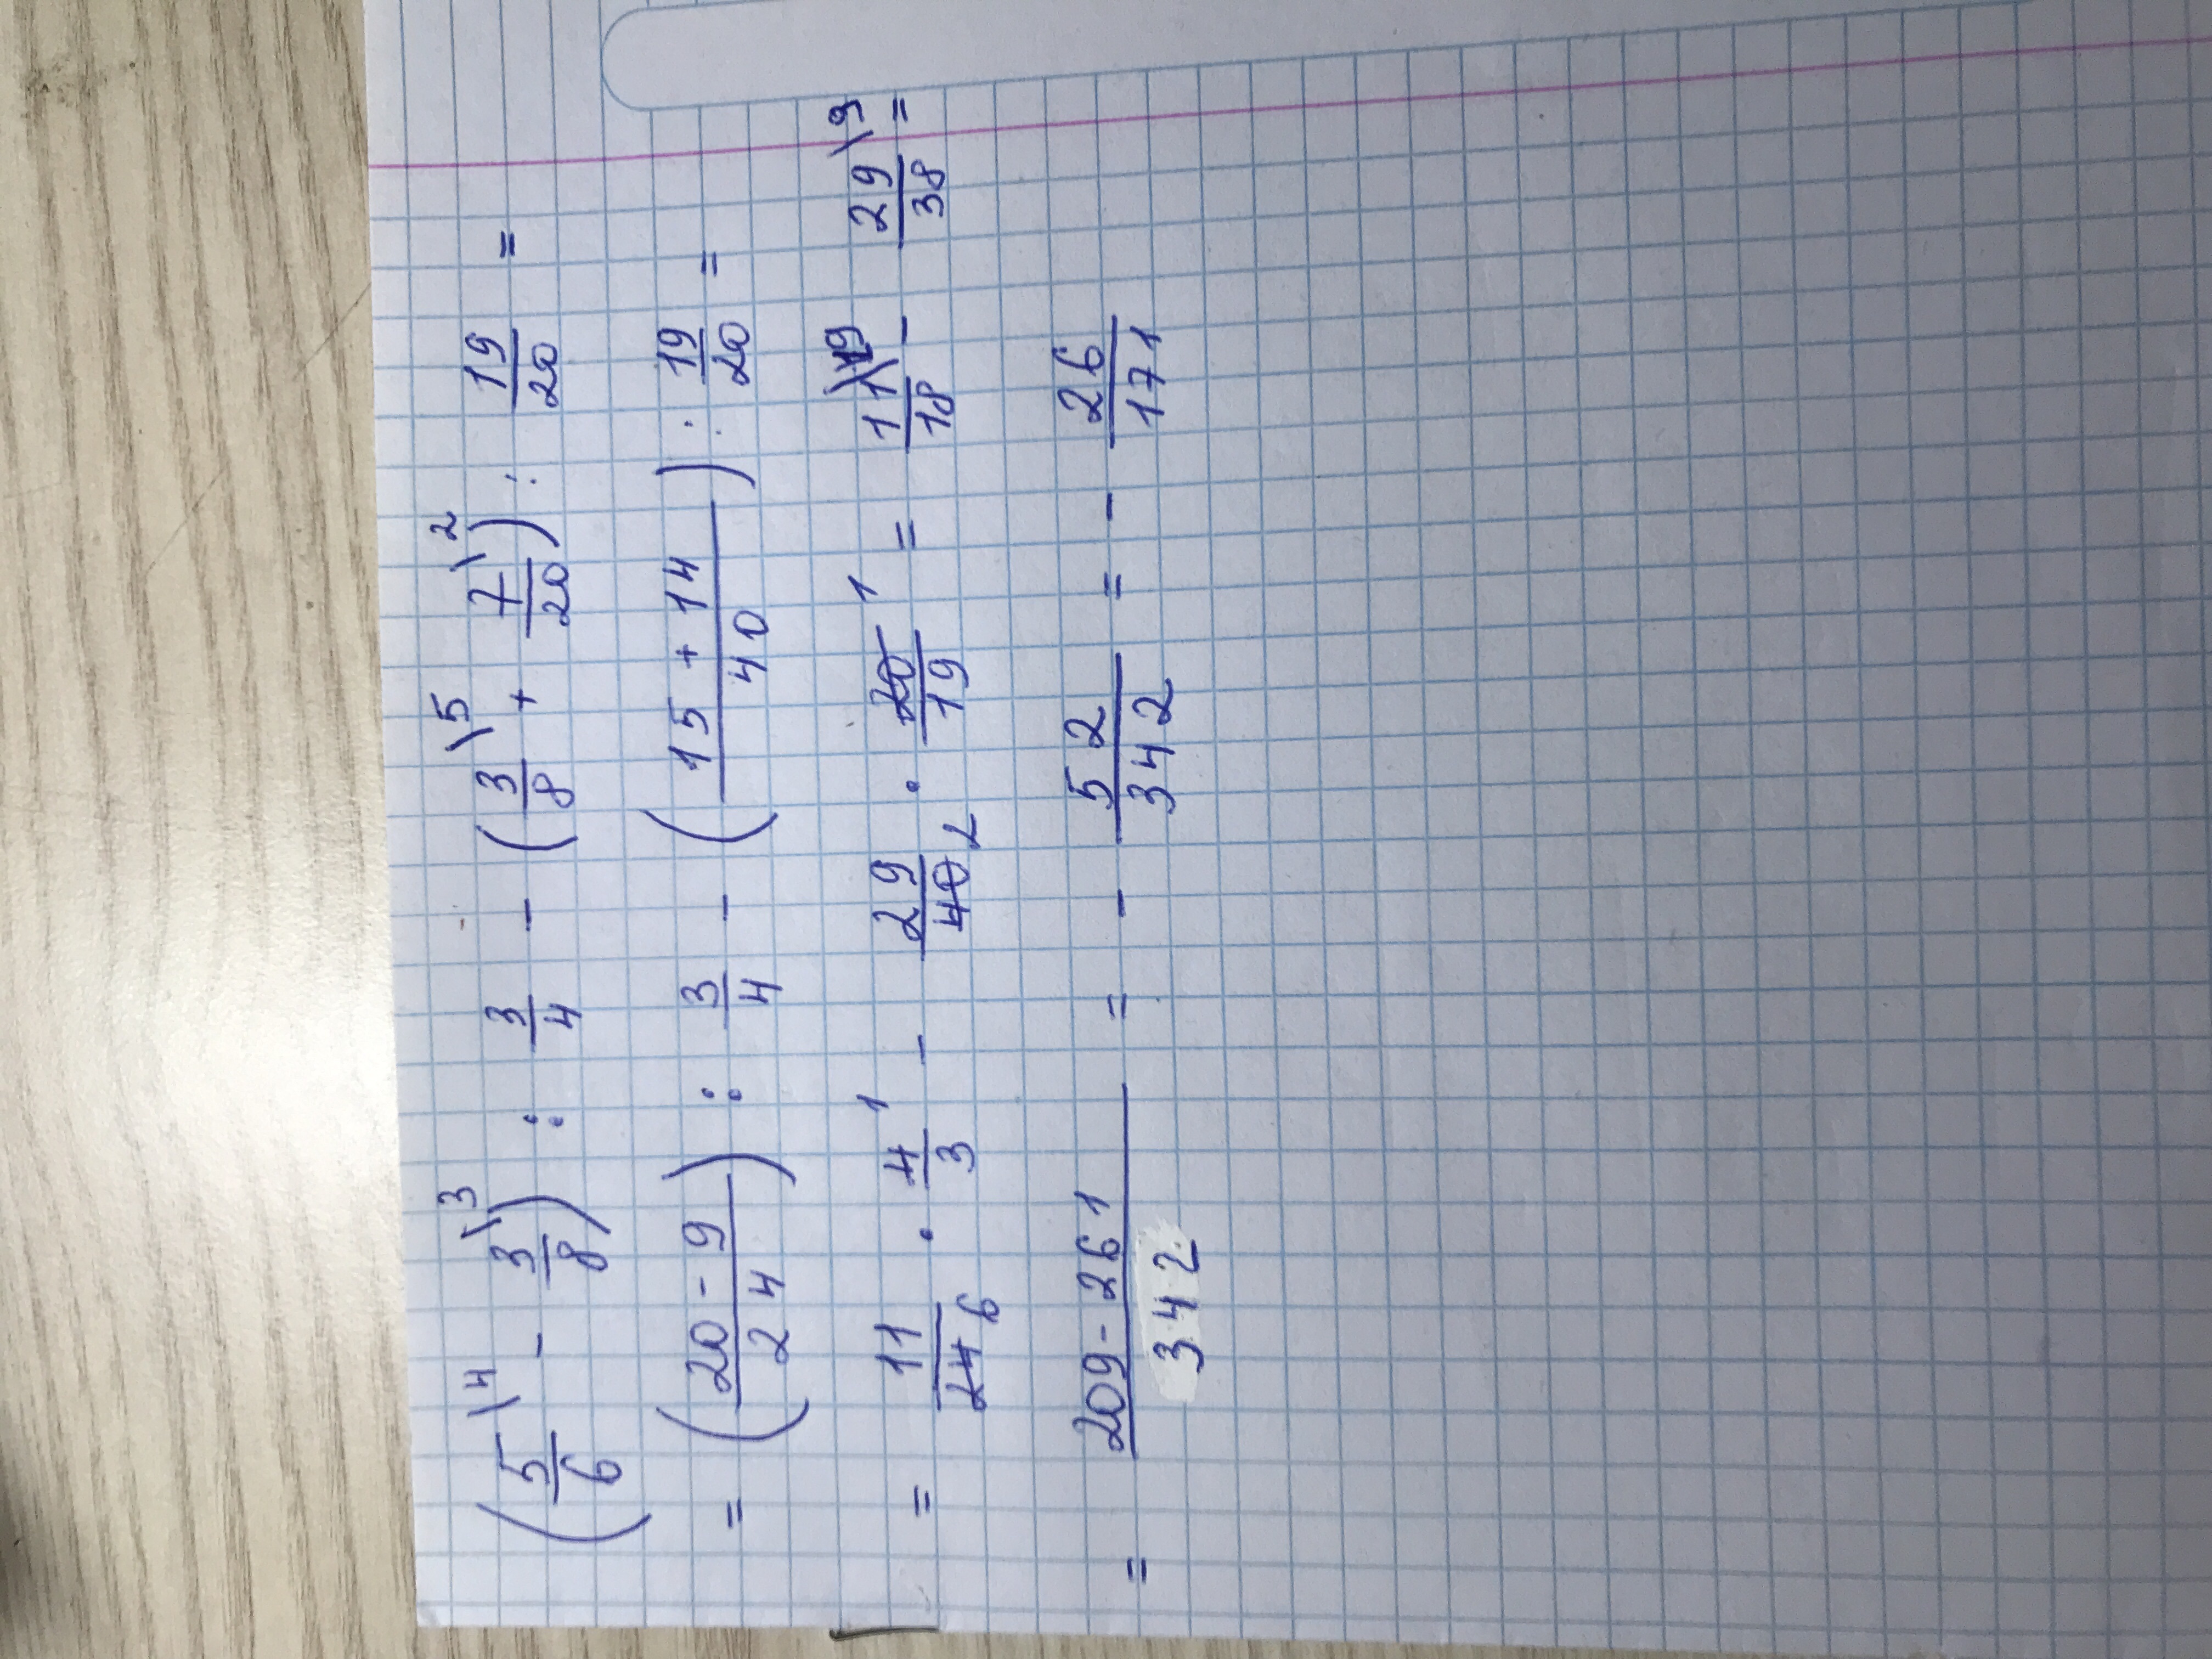 (5/6 \4 - 3/8 \3) : 3/4 - (3/8 \5 + 7/20 \2) : 19/20 =
= (20 - 9/24) : 3/4 - (15 + 14/40) : 19/20 =
= 11/24 6 · 4/3 1 - 29/40 2 · 20/19 1 = 11/18 \19 - 29/38 \9 =
= 209 - 261/342 = - 52/342 = - 26/171